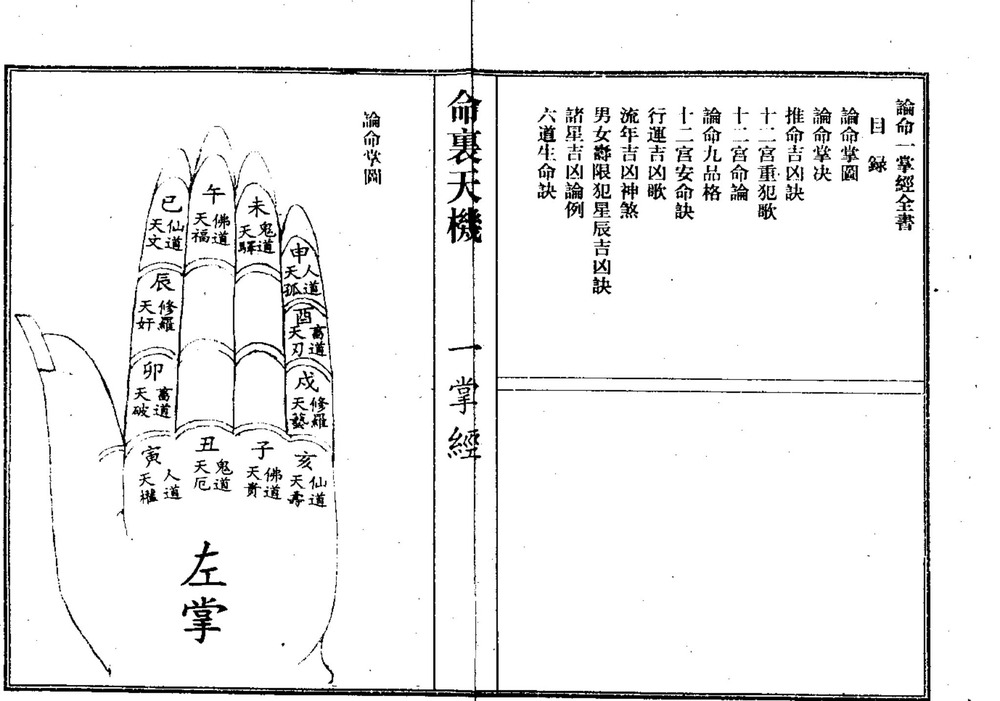 論命一掌經全書
目錄
論命掌圖
論命掌決
推命吉凶訣
十二宮重犯歌
十二宮命論
論命九品格
十二宮安命訣
行運吉凶歌
流年吉凶神煞
男女壽限犯星辰吉凶訣
諸星吉凶論例
六道生命訣
命裏天機 一掌經
論命掌圖
巳
仙道
天文
午
佛道
天福
未
鬼道
天驛
申
人道
天孤
辰
修羅
天奸
酉
畜道
天刃
卯
畜道
天破
戌
修羅
天藝
寅
人道
天權
丑
鬼道
天厄
子
佛道
天貴
亥
仙道
天壽
左掌